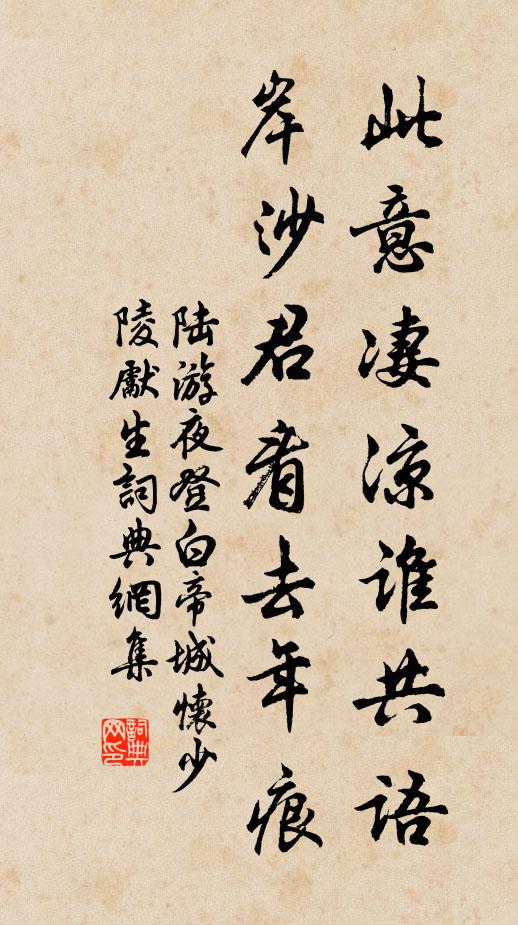 此意凄涼誰共語
岸沙君看去年痕
陆游夜登白帝城懷少
陵獻生詞典網集
詞典
网印